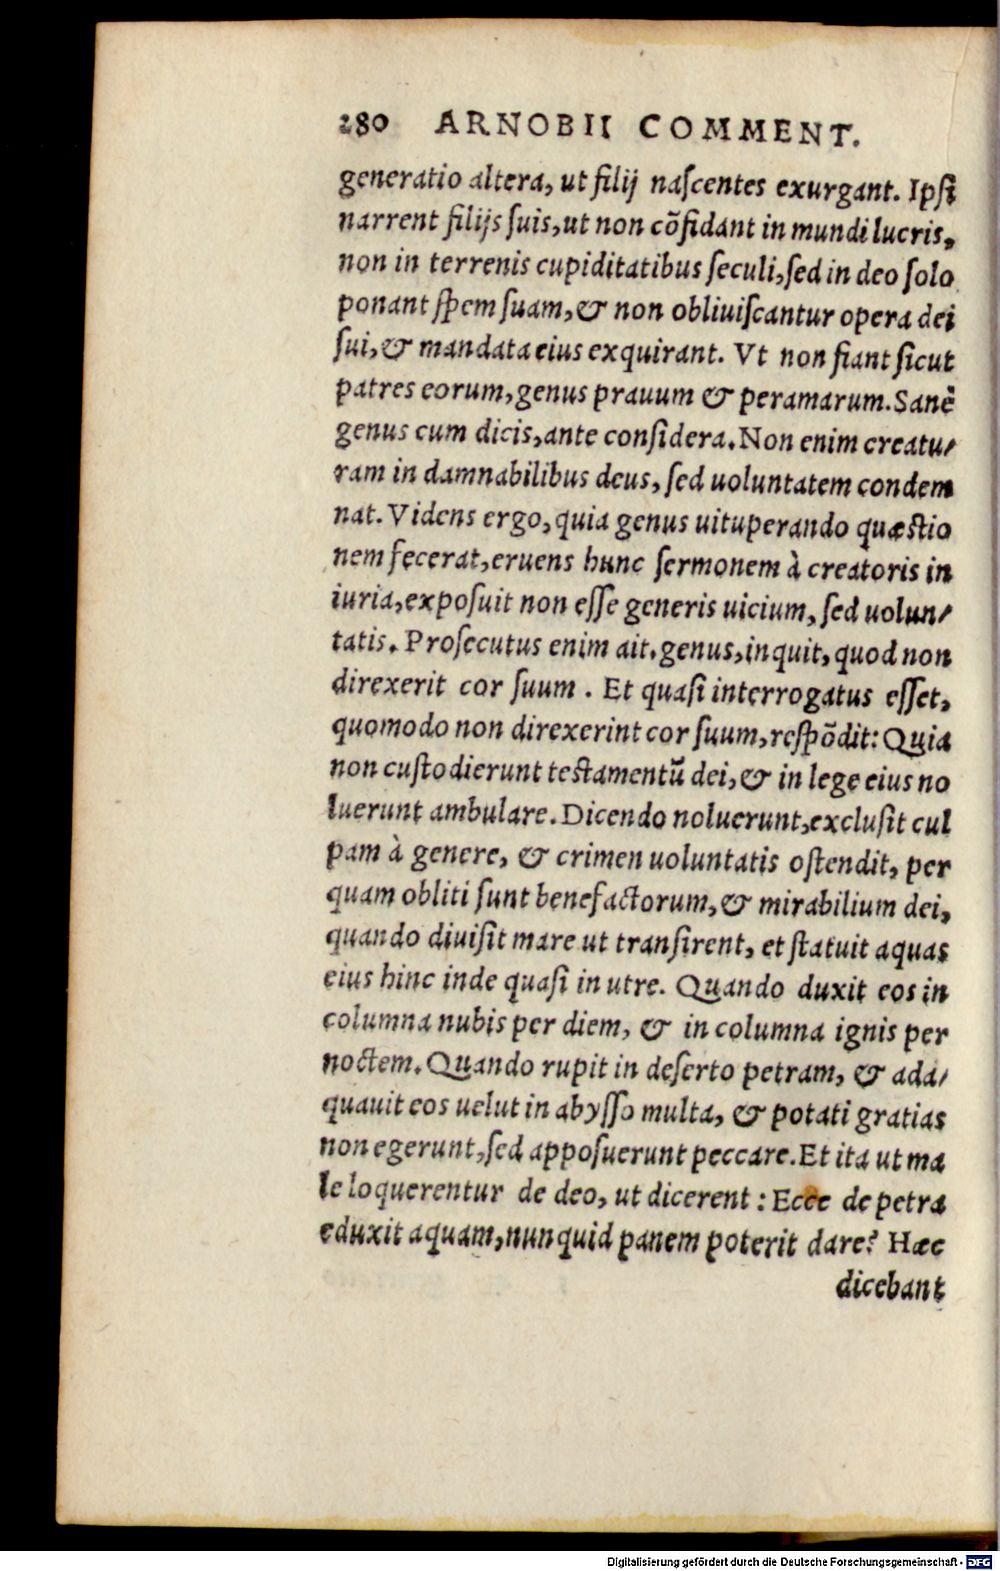 280 ARNOBII COMMENT.
generatio altera, ut filij nascentes exurgant. Ipsi
narrent filijs suis, ut non cõfidant in mundi lucris,
non in terrenis cupiditatibus seculi, sed in deo solo
ponant spem suam, & non obliuiscantur opera dei
sui, & mandata eius exquirant. Vt non fiant sicut
patres eorum, genus prauum & peramarum. Sanè
genus cum dicis, ante considera. Non enim creatu/
ram in damnabilibus deus, sed uoluntatem condem
nat. Videns ergo, quia genus uituperando quæstio
nem fecerat, eruens hunc sermonem à creatoris in
iuria, exposuit non esse generis uicium, sed uolun/
tatis. Prosecutus enim ait. genus, inquit, quod non
direxerit cor suum . Et quasi interrogatus esset,
quomodo non direxerint cor suum, respõdit: Quia
non custodierunt testamentũ dei, & in lege eius no
luerunt ambulare. Dicendo noluerunt, exclusit cul
pam à genere, & crimen uoluntatis ostendit, per
quam obliti sunt benefactorum, & mirabilium dei,
quando diuisit mare ut transirent, et statuit aquas
eius hinc inde quasi in utre. Quando duxit eos in
columna nubis per diem, & in columna ignis per
noctem. Quando rupit in deserto petram, & ada/
quauit eos uelut in abysso multa, & potati gratias
non egerunt, sed apposuerunt peccare. Et ita ut ma
le loquerentur de deo, ut dicerent : Ecce de petra
eduxit aquam, nunquid panem poterit dare? Hæc
dicebant
Digitalisierung gefördert durch die Deutsche Forschungsgemeinschaft - DFG